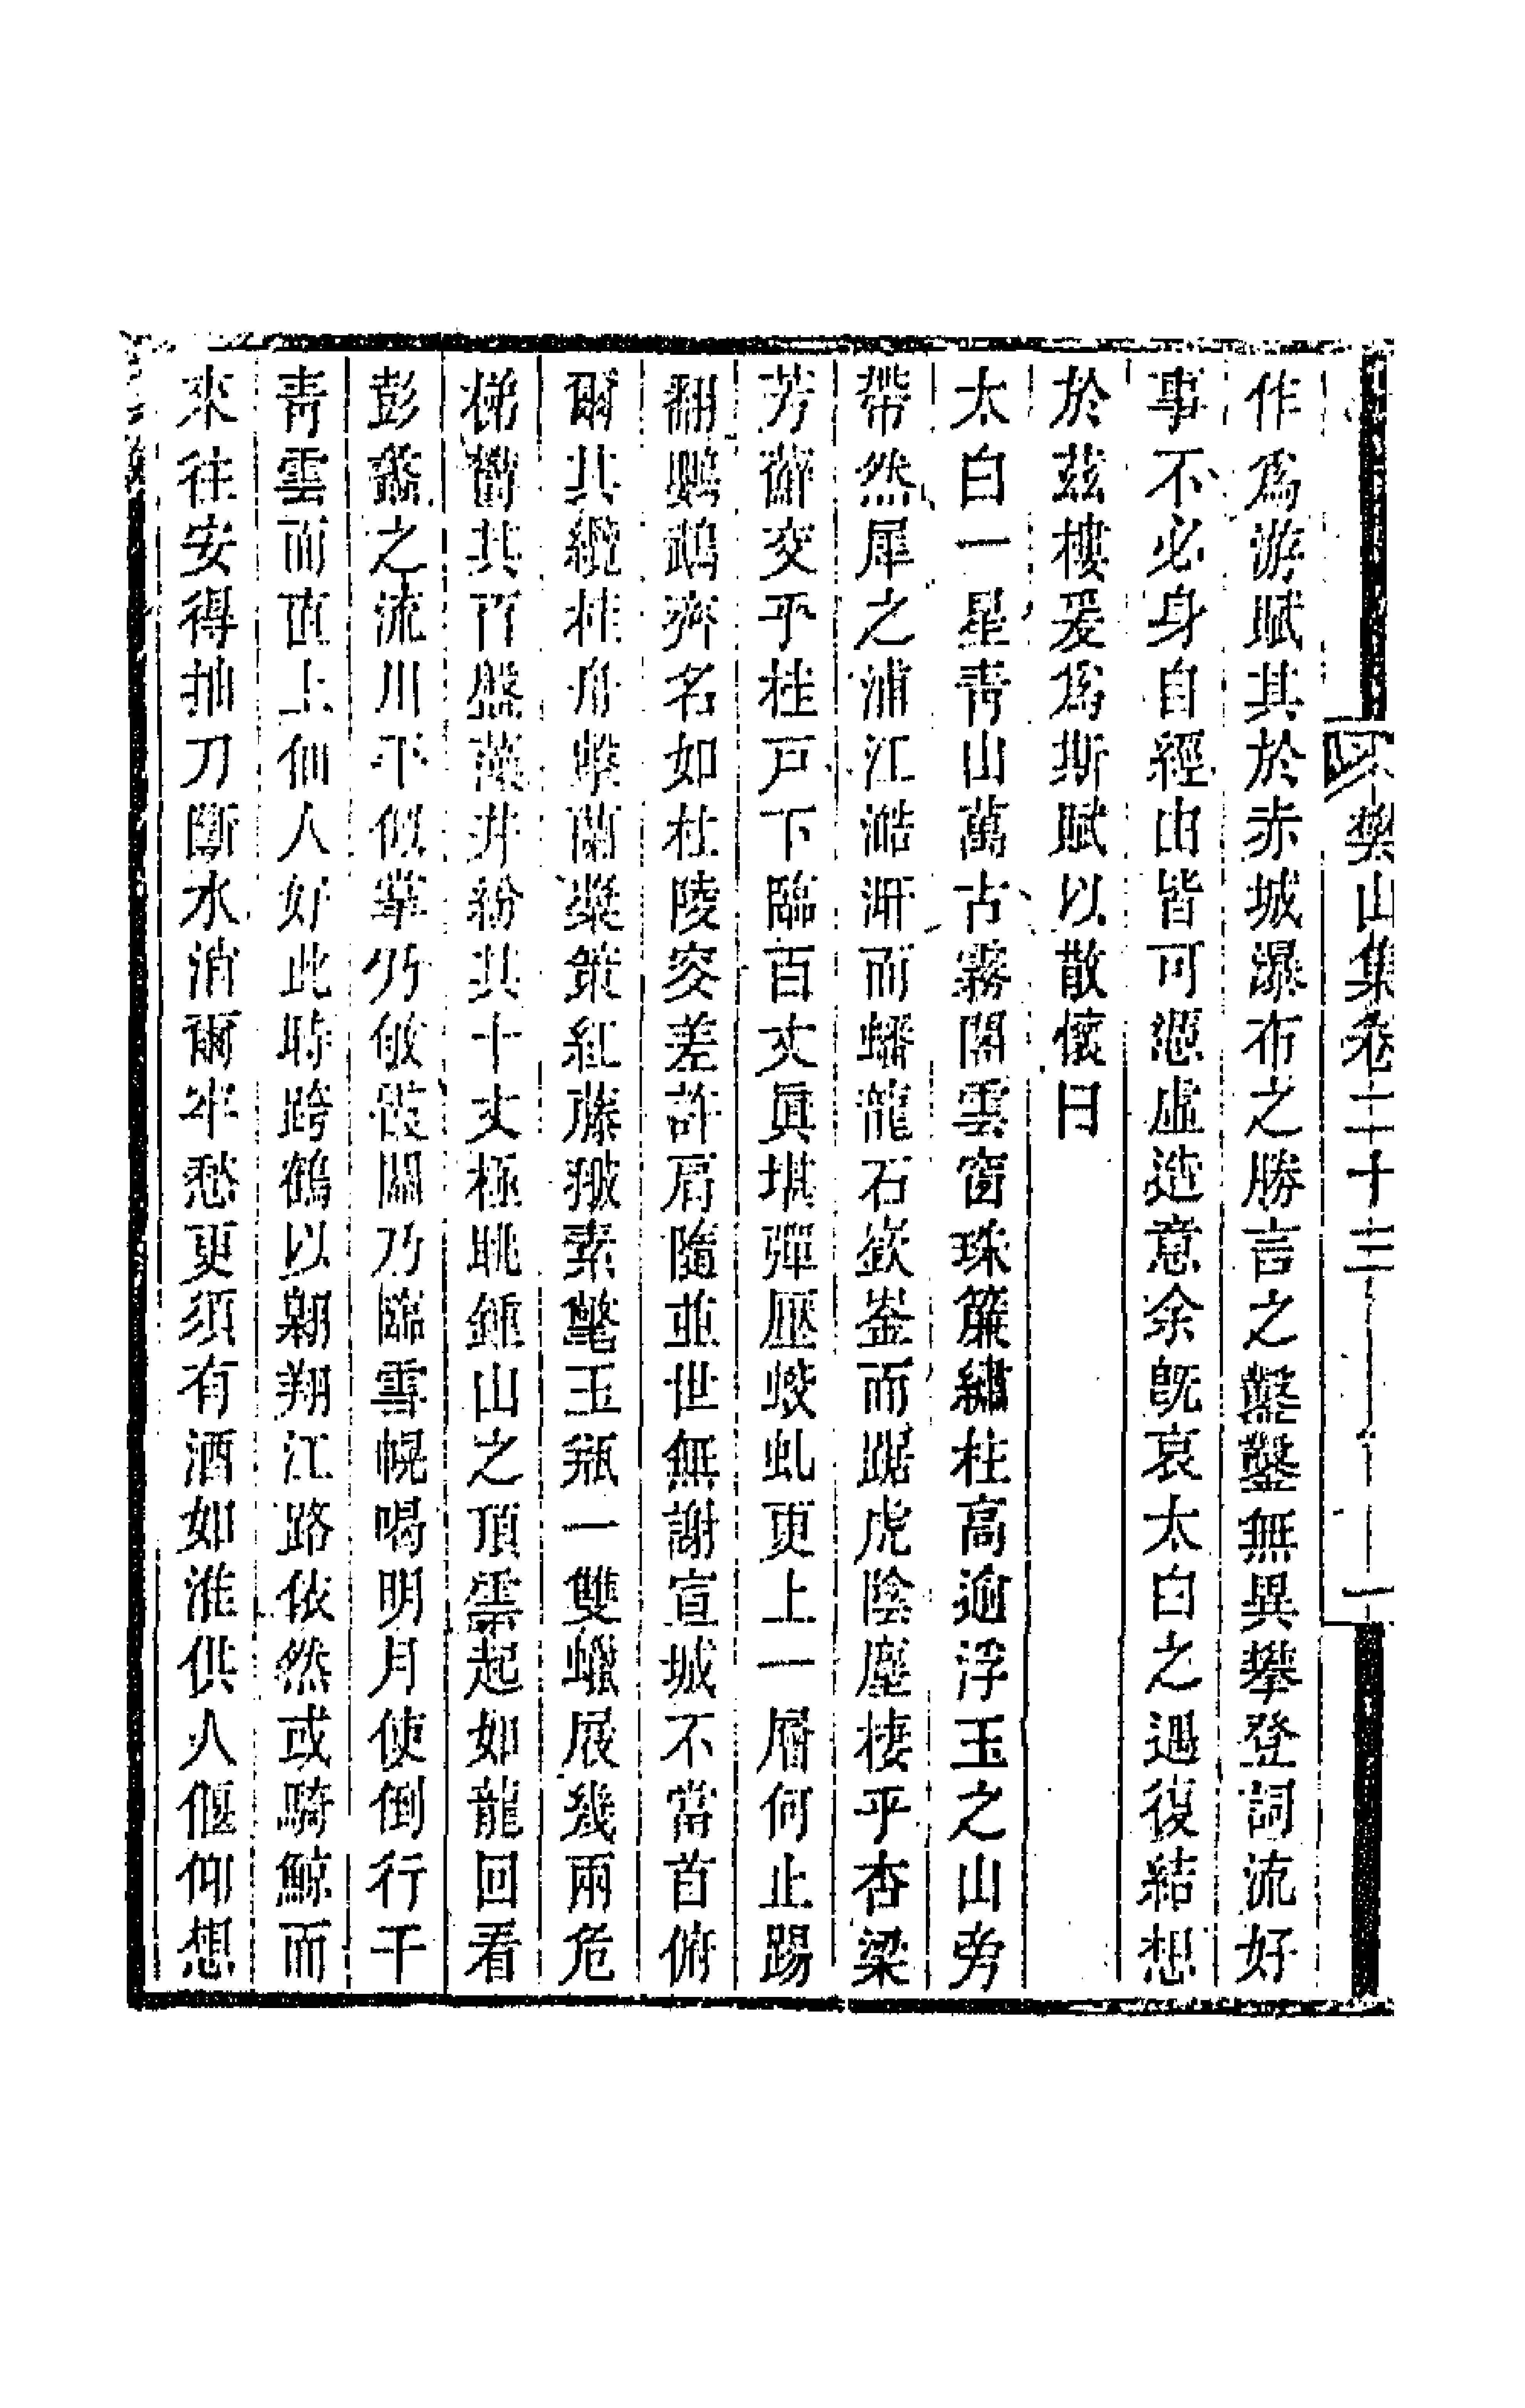 樊山集卷二十三 一
作爲游賦其於赤城瀑布之勝言之鑿鑿無異攀登詞流好
事不必身自經由皆可憑虛造意余旣哀太白之遇復結想
於茲樓爰爲斯賦以散懷曰
太白一星靑山萬古霧閣雲窗珠簾繡柱高逾浮玉之山旁
帶然犀之浦江澔汗而蟠龍石嶔崟而踞虎陰塵棲乎杏梁
芳蘚交乎桂戸下臨百丈眞堪彈壓蛟虬更上一層何止踢
翻鸚鵡齊名如杜陵突差許肩隨並世無謝宣城不當首俯
爾其纜桂舟擊蘭槳策紅藤披素氅玉瓶一雙蠟屐幾兩危
梯轡其百盤藻井紛其十丈極眺鍾山之頂霱起如龍回看
彭蠡之流川平似掌乃敞霞關乃臨雪幌喝明月使倒行干
靑雲而直上仙人好此時跨鶴以翱翔江路依然或騎鯨而
來往安得抽刀斷水消爾牢愁更須有酒如淮供人偃仰想